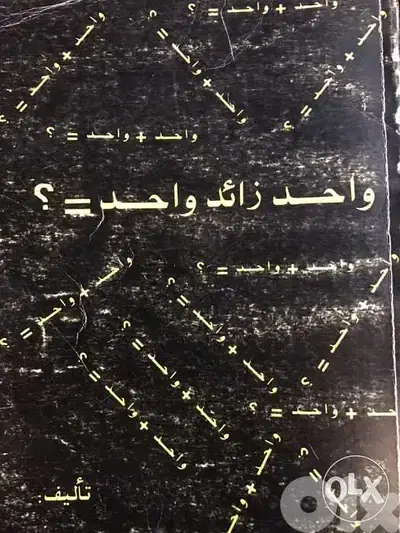 واحد + واحد = ؟
واحد + واحد = ؟
واحد + واحد = ؟
واحد + واحد = ؟
واحد + واحد = ؟
واحد زائد واحد = ؟
واحد + واحد = ؟
واحد + واحد = ؟
واحد + واحد = ؟
واحد + واحد = ؟
واحد + واحد = ؟
واحد + واحد = ؟
حد + واحد = ؟
واحد + واحد
؟ =
تأليف:
OLX